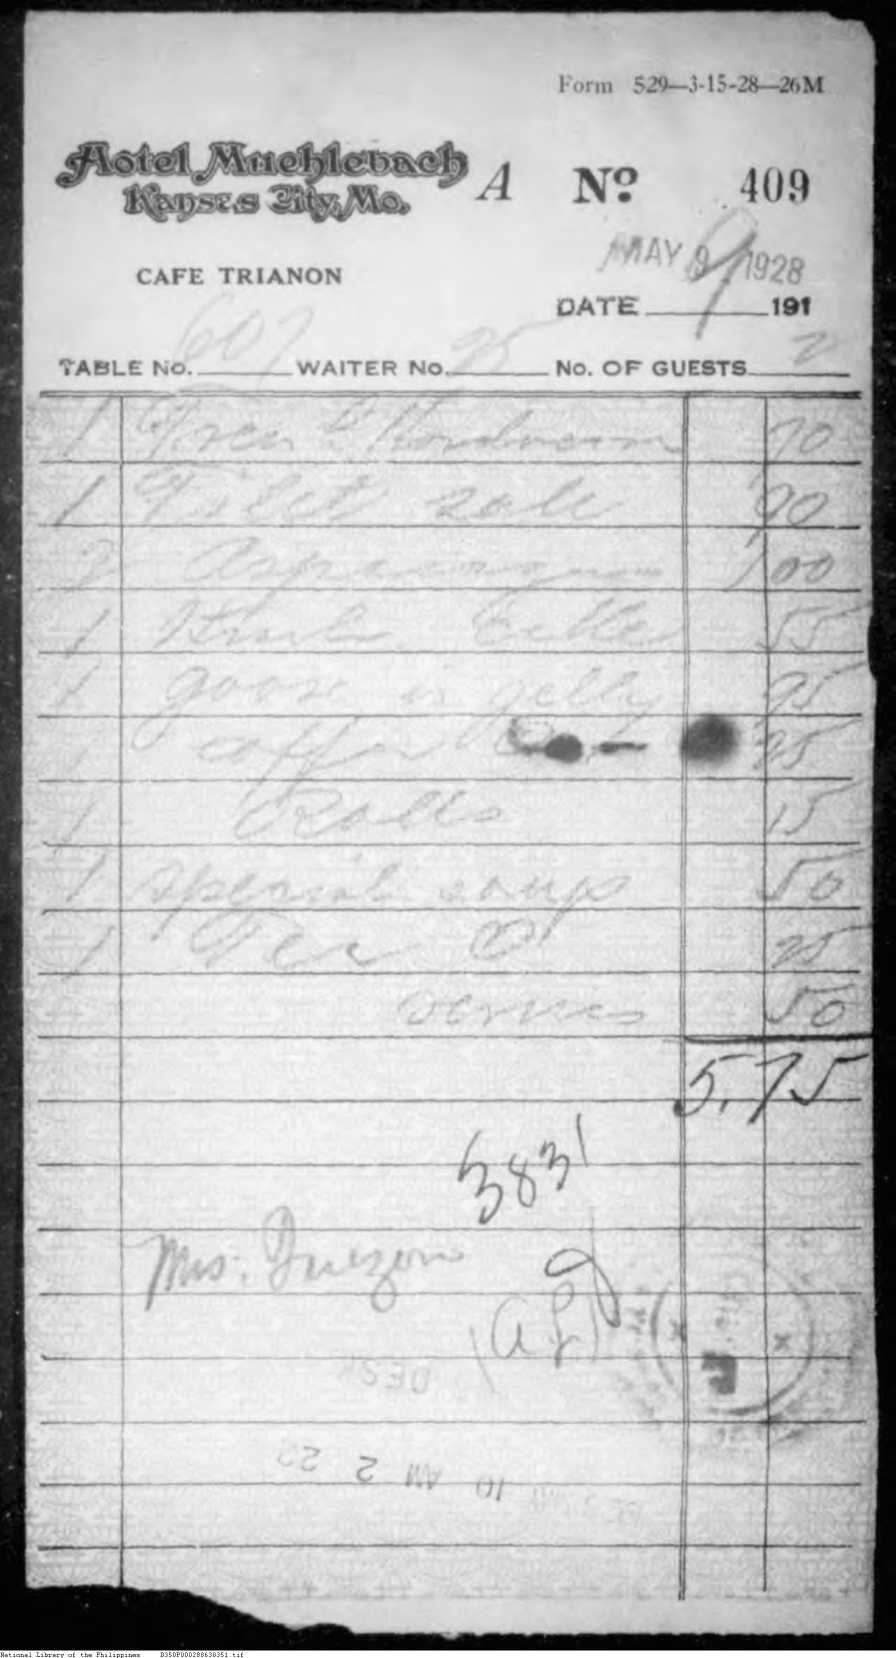 Form 529—3-15-28—26M
Hotel Muehlebach
Kansas City, Mo.
A No 409
CAFE TRIANON
MAY 9 1928
DATE 191
TABLE No. 607 WAITER No. 25 No. OF GUESTS 2
1 70
1 Filet sole 90
2 Asparagus 1 00
1 55
1 goose in jelly 95
1 coffee 25
1 Rolls 15
1 special soup 50
1 Tea O 25
service 50
5.75
3831
Mrs. Quezon
DESK
10 AM 2 22
National Library of the Philippines D350P000288638351.tif